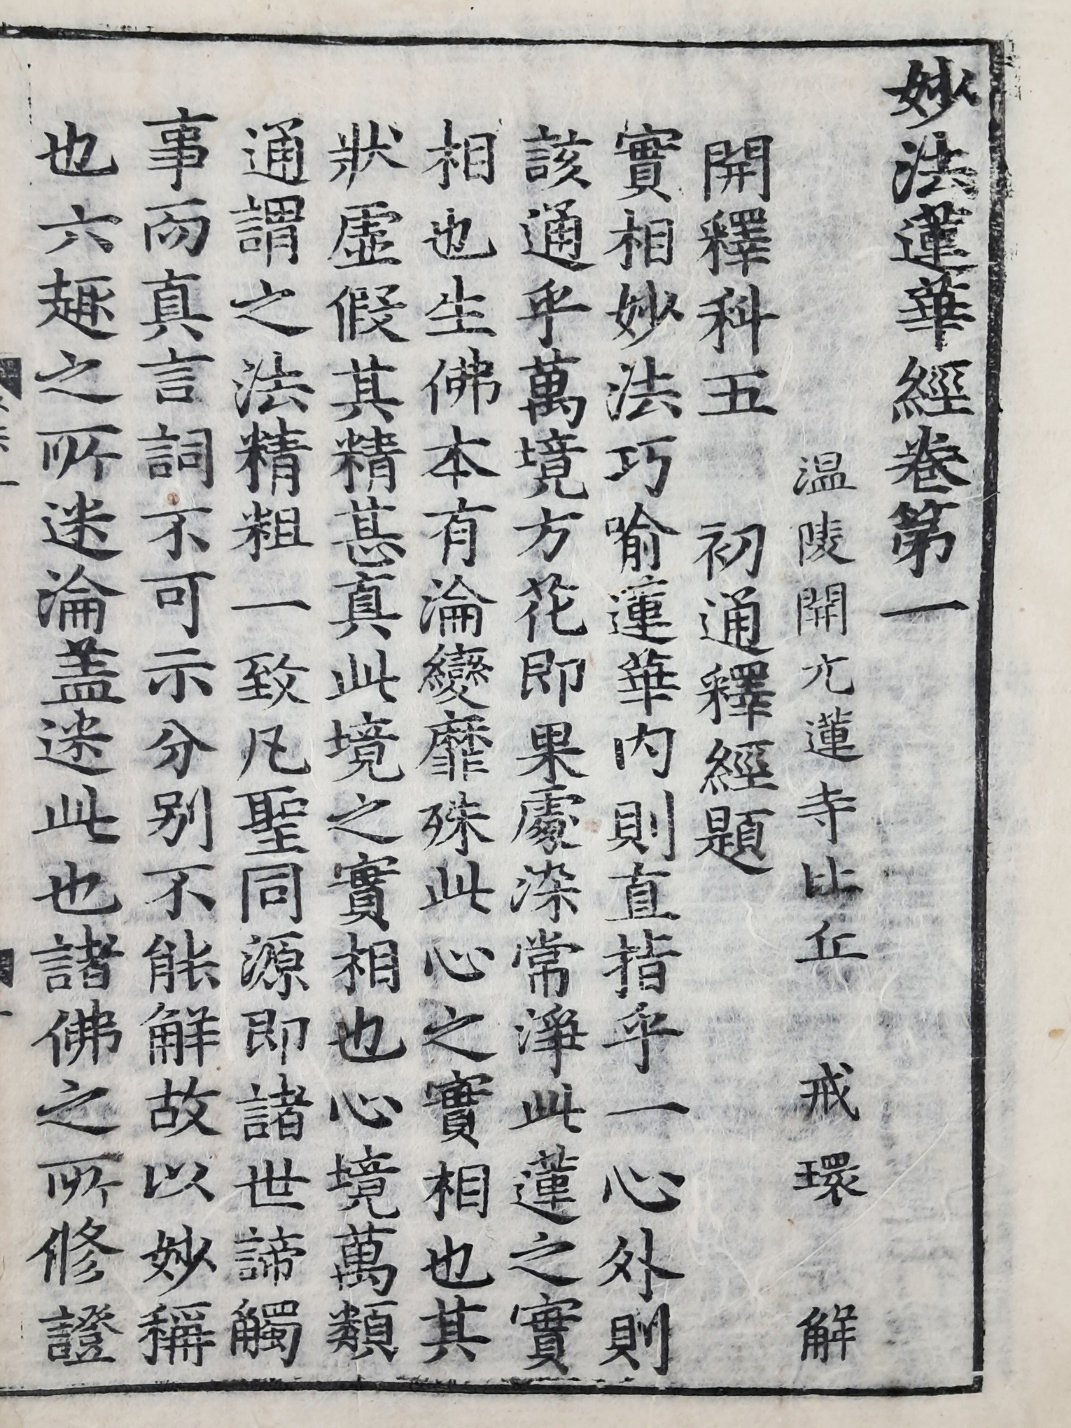 妙法蓮華經卷第一
温陵開元蓮寺比丘 戒環 解
開釋科五 初通釋經題
實相妙法巧喻蓮華内則直指乎一心外則
該通乎萬境方花即果處染常淨此蓮之實
相也生佛本有淪變靡殊此心之實相也其
狀虛假其精甚真此境之實相也心境萬類
通謂之法精粗一致凡聖同源即諸世諦觸
事而真言詞不可示分别不能解故以妙稱
也六趣之所迷淪盖迷此也諸佛之所修證